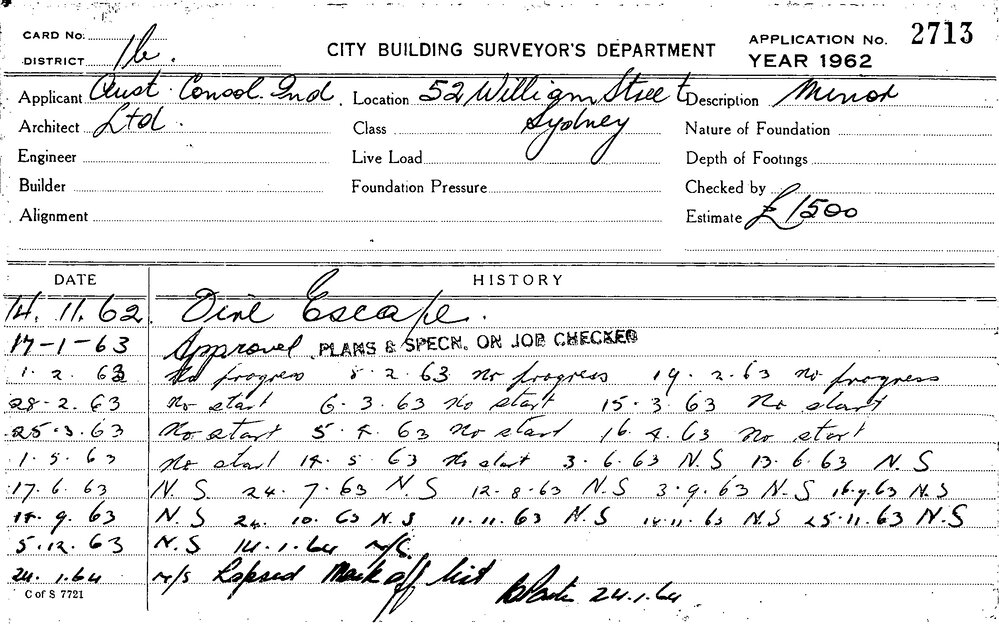 CARD No.
DISTRICT 1b.
CITY BUILDING SURVEYOR'S DEPARTMENT
APPLICATION No. 2713
YEAR 1962
Applicant Aust. Consol. Ind. Location 52 William Street Description Minor
Architect Ltd. Class Sydney Nature of Foundation
Engineer Live Load Depth of Footings
Builder Foundation Pressure Checked by
Alignment Estimate £1500
DATE HISTORY
14.11.62. Fire Escape.
17-1-63 Approval PLANS & SPECN. ON JOB CHECKED
1.2.63 No progress 8.2.63 no progress 19.2.63 no progress
28-2.63 No start 6.3.63 No start 15.3.63 No start
25.3.63 No start 5.4.63 No start 16.4.63 No start
1.5.63 No start 14.5.63 No start 3.6.63 N.S 13.6.63 N.S
17.6.63 N.S 24.7.63 N.S 12.8.63 N.S 3.9.63 N.S N.S
9.63 N.S 24.10.63 N.S 11.11.63 N.S 11.63 N.S 25.11.63 N.S
5.12.63 N.S 14.1.64 n/s.
24.1.64 n/s Lapsed Mark off list
24.1.64
C of S 7721